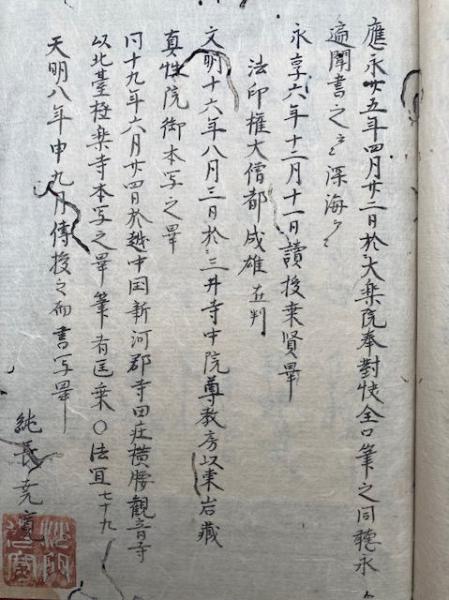 應永廿五年四月廿二日於大楽院奉對快全口筆之同聴永
遍聞書之云々深海
永享六年十二月十一日讀授乗賢畢
法印権大僧都成雄在判
文明十六年八月三日於三井寺中院尊教房以東岩蔵
真性院御本写之畢
同十九年六月廿四日於越中国新河郡寺田庄横腰觀音寺
以北臺極楽寺本写之畢筆者匡乗〇法宜七十九
天明八年申九月傳授之而書写畢
純長